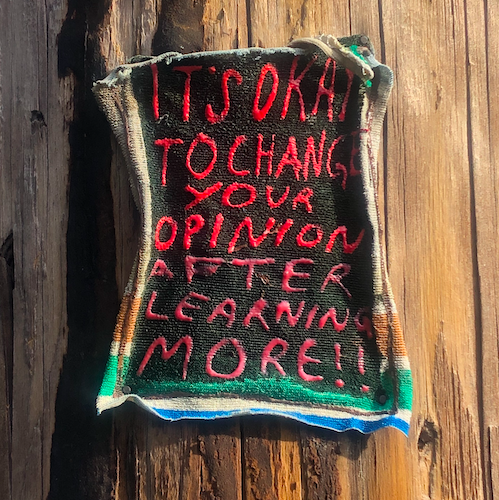 IT'S OKAY
TO CHANGE
YOUR
OPINION
AFTER
LEARNING
MORE!!